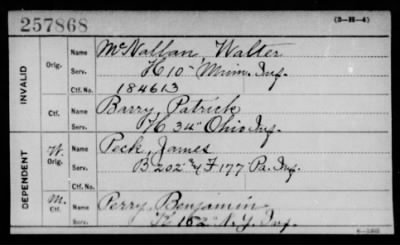 257868 (3-H-4)
INVALID
Orig.
Name McNallan, Walter
Serv. H 10" Minn. Inf.
Ctf. No. 184613
Ctf.
Name Barry, Patrick
Serv. K 34" Ohio Inf.
DEPENDENT
W. Orig.
Name Peck, James
Serv. B 202 & F 177 Pa. Inf.
Ctf. No.
M. Ctf.
Name Perry, Benjamin
Serv. K 162" N.Y. Inf.